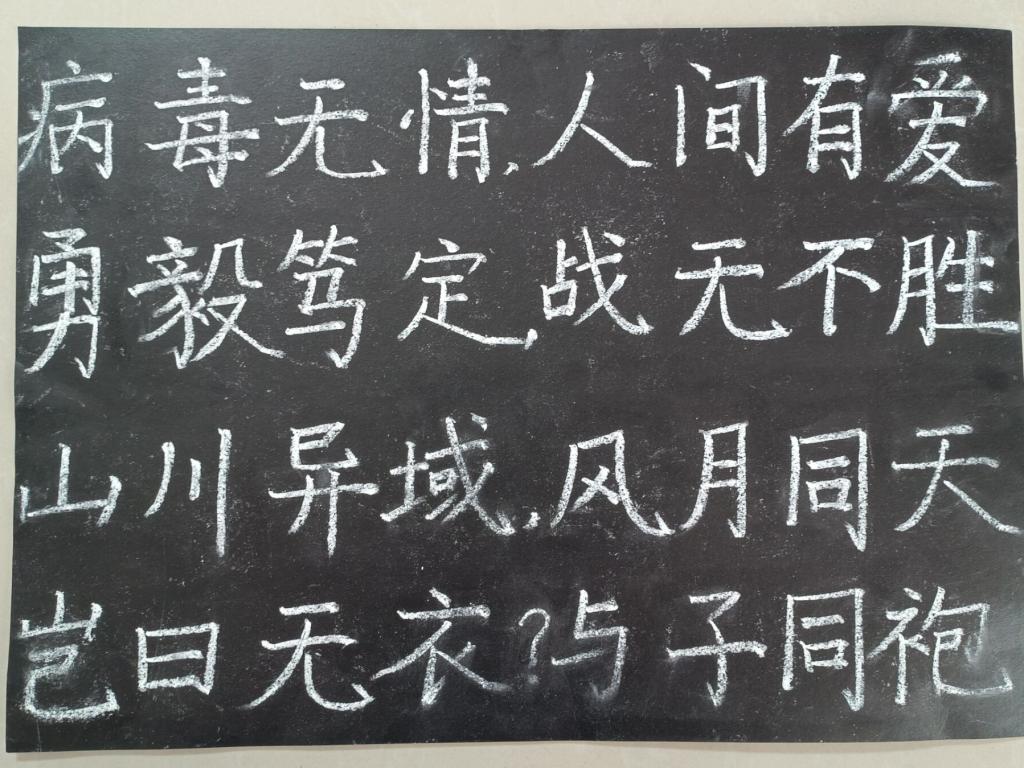 病毒无情,人间有爱
勇毅笃定,战无不胜
山川异域,风月同天
岂曰无衣?与子同袍